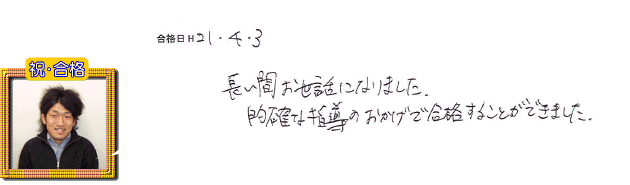 合格日 H 21・4・3
祝・合格
長い間お世話になりました.
的確な指導のおかげで合格することができました.